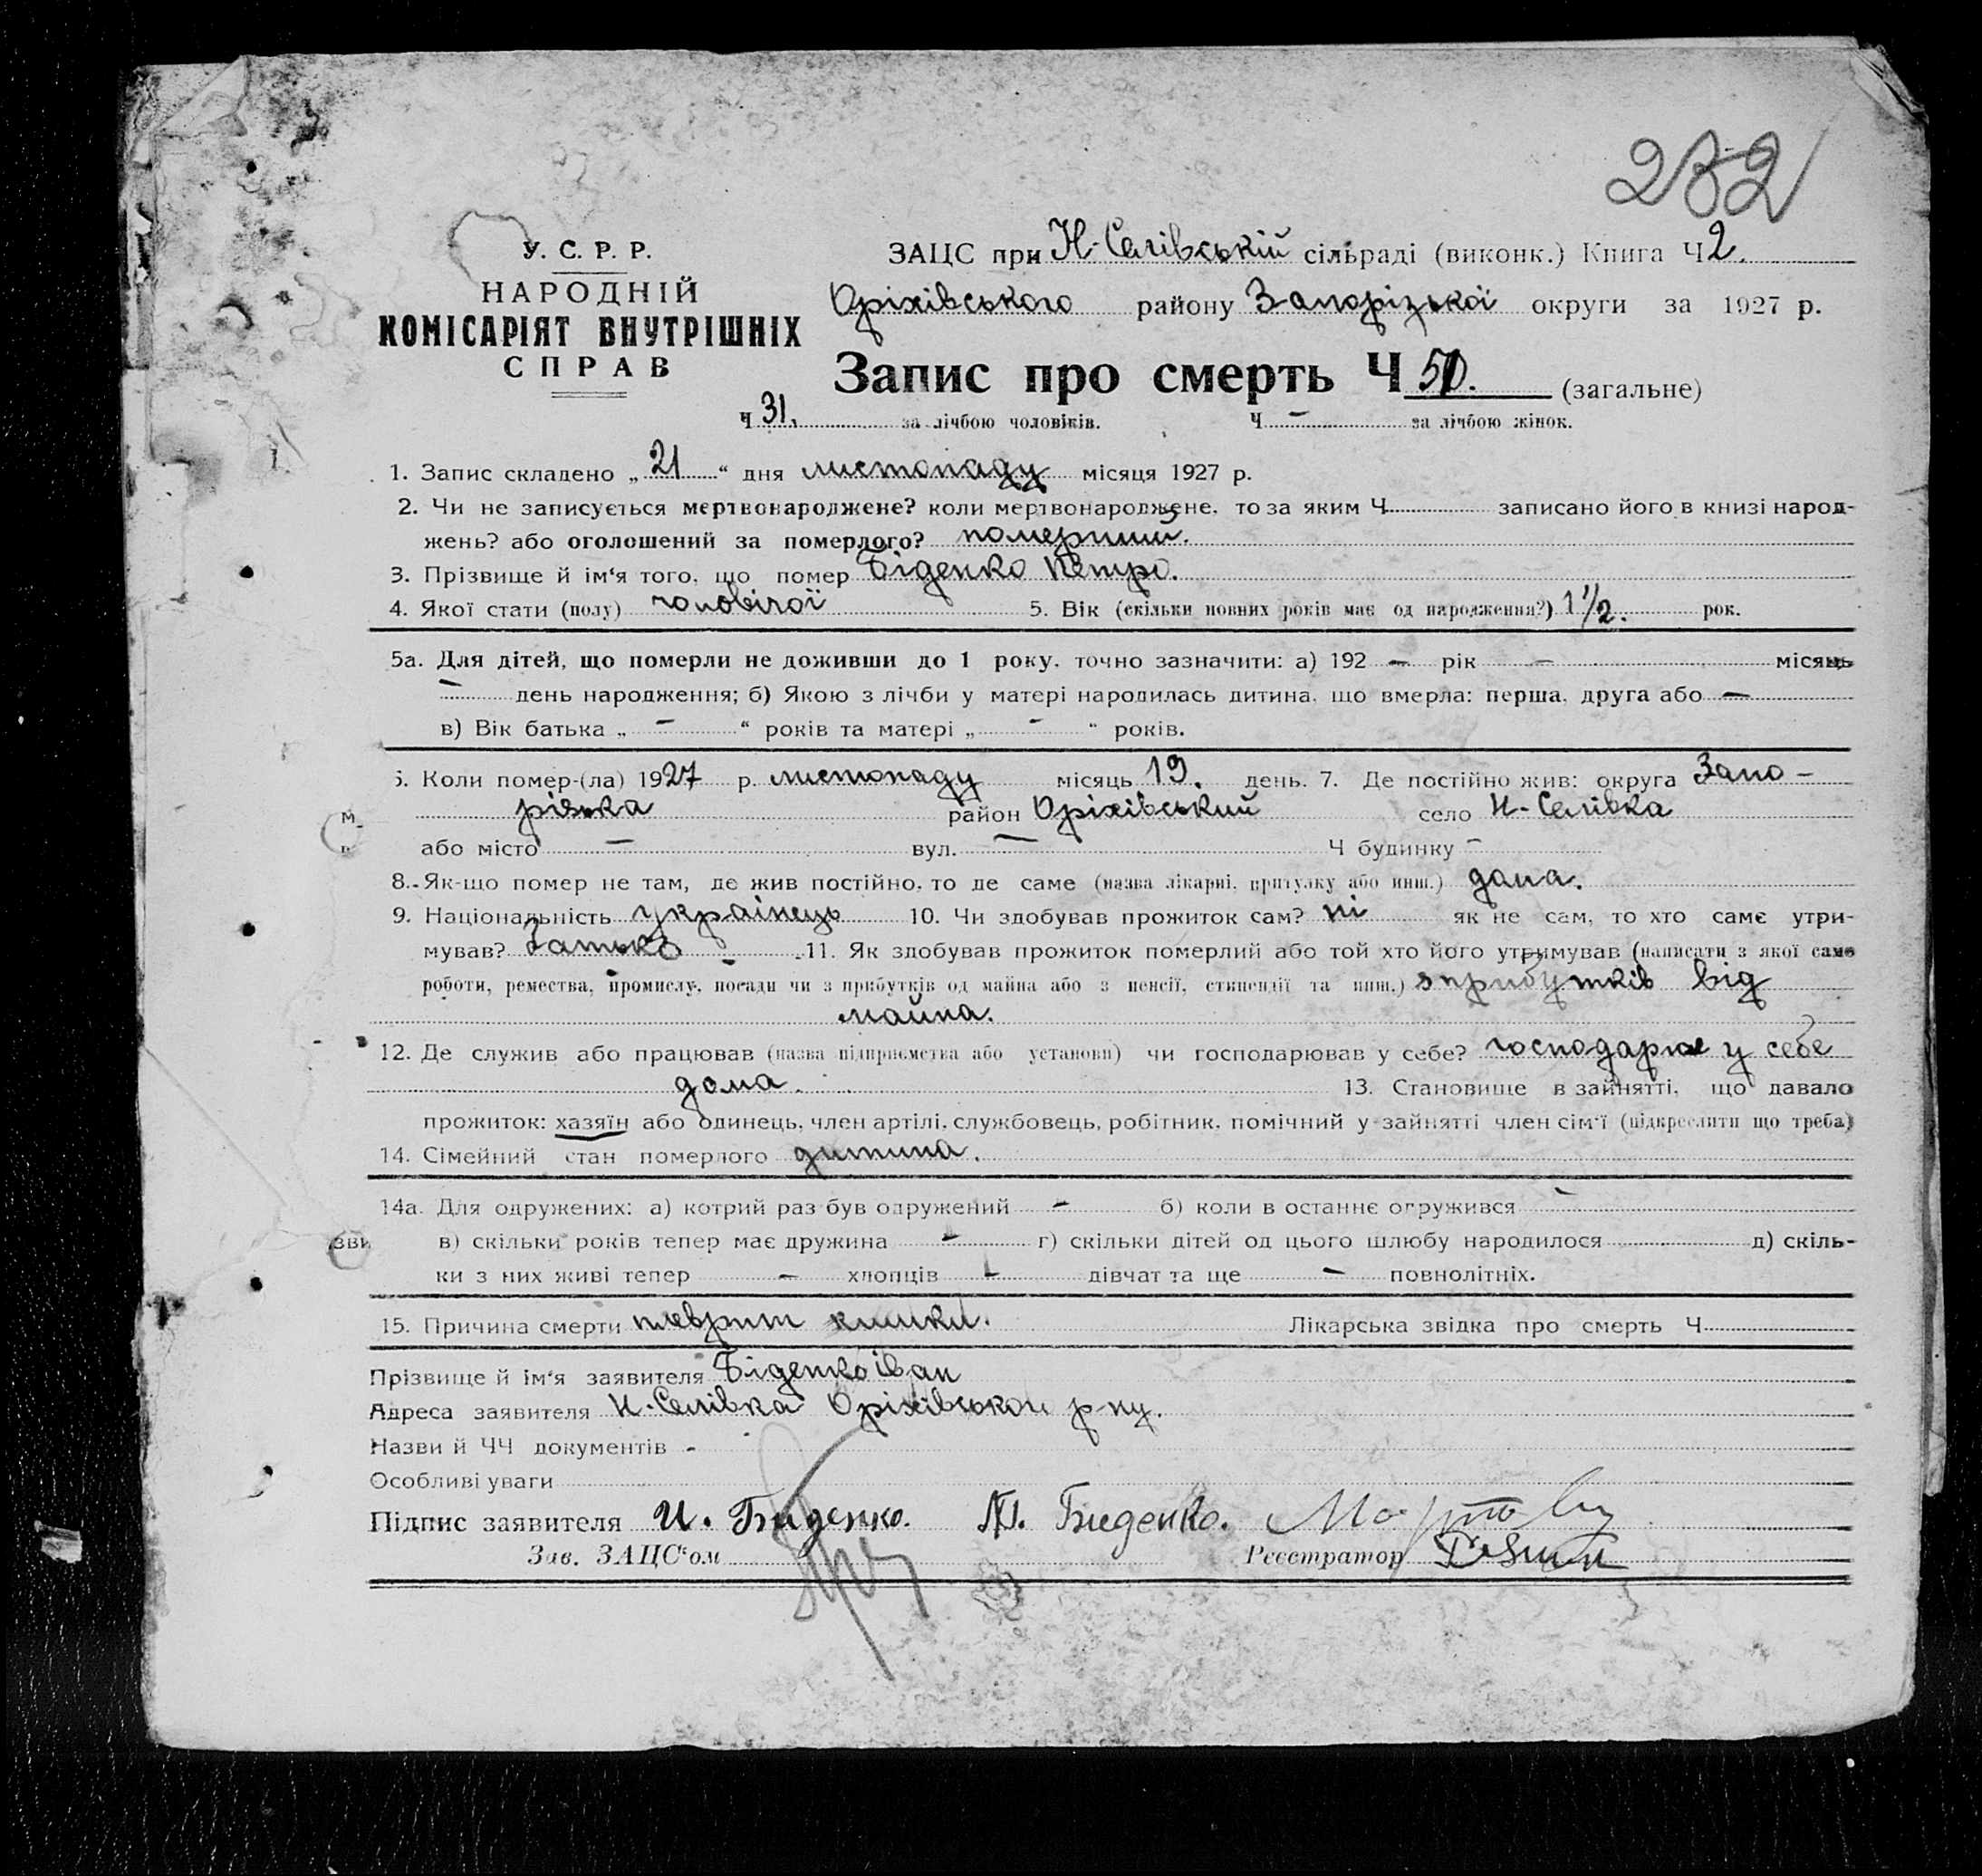 232
У. С. Р. Р.
НАРОДНІЙ
КОМІСАРІЯТ ВНУТРІШНІХ
СПРАВ
ЗАЦС при Н-Селівській сільраді (виконк.) Книга Ч 2.
Оріхівського району Запорізької округи за 1927 р.
Запис про смерть Ч 50. (загальне)
Ч 31. за лічбою чоловіків. Ч — за лічбою жінок.
1. Запис складено „ 21 “ дня листопаду місяця 1927 р.
2. Чи не записується мертвонароджене? коли мертвонароджене, то за яким Ч записано його в книзі народ-
жень? або оголошений за померлого? померший.
3. Прізвище й ім‘я того, що помер Біденко Петро.
4. Якої стати (полу) чоловічої 5. Вік (скільки повних років має од народження?) 1 1/2. рок.
5а. Для дітей, що померли не доживши до 1 року, точно зазначити: а) 192 — рік — місяць
— день народження; б) Якою з лічби у матері народилась дитина, що вмерла: перша, друга або —
в) Вік батька „ — “ років та матері „ — “ років.
6. Коли помер-(ла) 1927 р. листопаду місяць 19. день. 7. Де постійно жив: округа Запо-
різька район Оріхівський село Н-Селівка
або місто — вул. — Ч будинку —
8. Як-що помер не там, де жив постійно, то де саме (назва лікарні, притулку або инш.) дома.
9. Національність українець 10. Чи здобував прожиток сам? ні як не сам, то хто саме утри-
мував? Батько 11. Як здобував прожиток померлий або той хто його утримував (написати з якої само
роботи, ремества, промислу, посади чи з прибутків од майна або з пенсії, стипендії та инш.) з прибутків від
майна.
12. Де служив або працював (назва підприємства або установи) чи господарював у себе? господарює у себе
дома. 13. Становище в зайнятті, що давало
прожиток: хазяїн або одинець, член артілі, службовець, робітник, помічний у зайнятті член сім‘ї (підкреслити що треба)
14. Сімейний стан померлого дитина.
14а. Для одружених: а) котрий раз був одружений — б) коли в останнє одружився —
в) скільки років тепер має дружина — г) скільки дітей од цього шлюбу народилося д) скіль-
ки з них живі тепер — хлопців — дівчат та ще — повнолітніх.
15. Причина смерти кишки. Лікарська звідка про смерть Ч
Прізвище й ім‘я заявителя Біденко Іван
Адреса заявителя Н-Селівка Оріхівськои р-ну.
Назви й ЧЧ документів -
Особливі уваги
Підпис заявителя И. Биденко. П. Биденко.
Зав. ЗАЦС‘ом Реєстратор